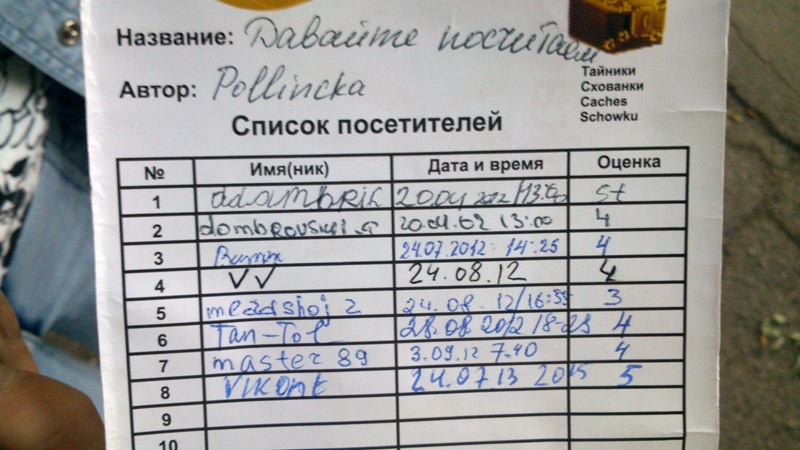 Название: Давайте посчитаем
Автор: Pollincka
Тайники
Схованки
Caches
Schowku
Список посетителей
№ Имя(ник) Дата и время Оценка
1 adambrik 20.04 2012 13:00 5+
2 dombrovskii.a 20.04.02 13:00 4
3 24.07.2012 14:25 4
4 VV 24.08.12 4
5 meddshoj 2 24.08.12/16:55 3
6 Tan-Tol 28.08 2012 18-23 4
7 master 89 3.09.12 7.40 4
8 Vikont 24.07.13 2015 5
9
10